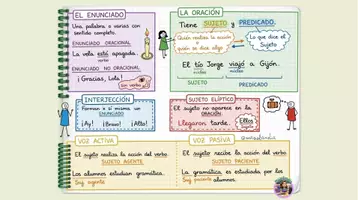 EL ENUNCIADO
Una palabra o varias con
sentido completo.
ENUNCIADO ORACIONAL
La vela está apagada.
verbo
ENUNCIADO NO ORACIONAL
¡Gracias, Lola!
Sin verbo
LA ORACIÓN
Tiene SUJETO y PREDICADO.
Quién realiza la acción
quién se dice algo
Lo que dice el
Sujeto
El tío Jorge viajó a Gijón.
núcleo
núcleo
SUJETO
PREDICADO
INTERJECCIÓN
Forman a sí misma un
ENUNCIADO
¡Ay! ¡Bravo! ¡Alto!
SUJETO ELÍPTICO
El sujeto no aparece en la
ORACIÓN
Llegaron tarde. Ellos
VOZ ACTIVA
El sujeto realiza la acción del verbo.
SUJETO AGENTE
Los alumnos estudian gramática.
Suj. agente
VOZ PASIVA
El sujeto recibe la acción del verbo.
SUJETO PACIENTE
La gramática es estudiada por los
Suj. paciente alumnos.